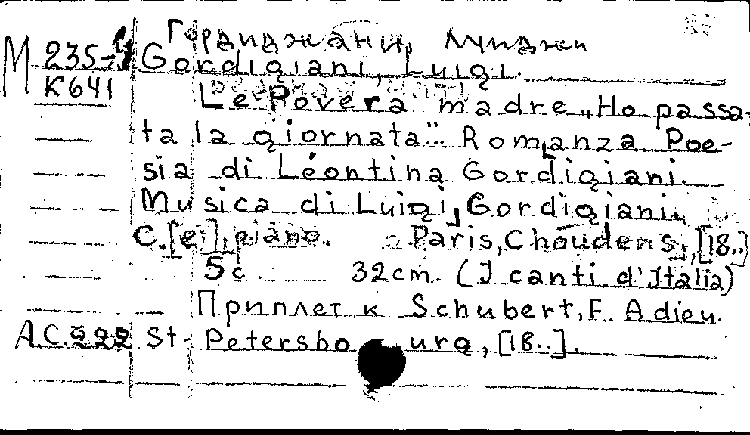 Гордиджани, Луиджи
М 235-4 Gordigiani, Luigi.
К641 Le Povera madre „Ho passa-
ta la giornata". Romanza Poe-
sia di Léontina Gordigiani.
Musica di Luigi Gordigiani.
C.[e] piano. Paris, Choudens, [18..]
5c 32cm. (I canti d'Italia)
Приплет к Schubert, F. Adieu.
A.C.222 St. Petersbourg, [18..].